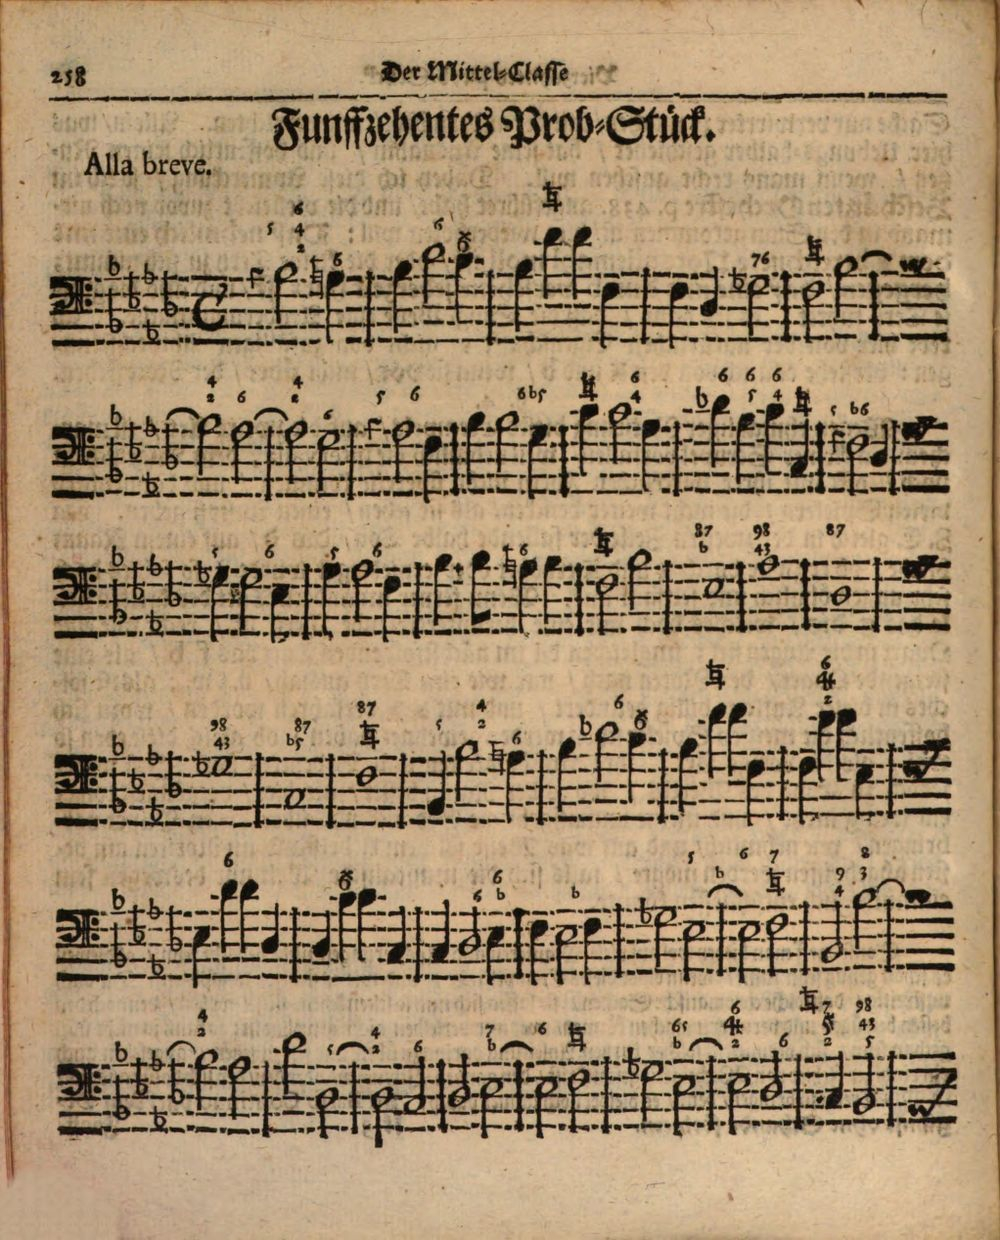 258
Der Mittel-Classe
Funffzehentes Prob-Stück.
Alla breve.